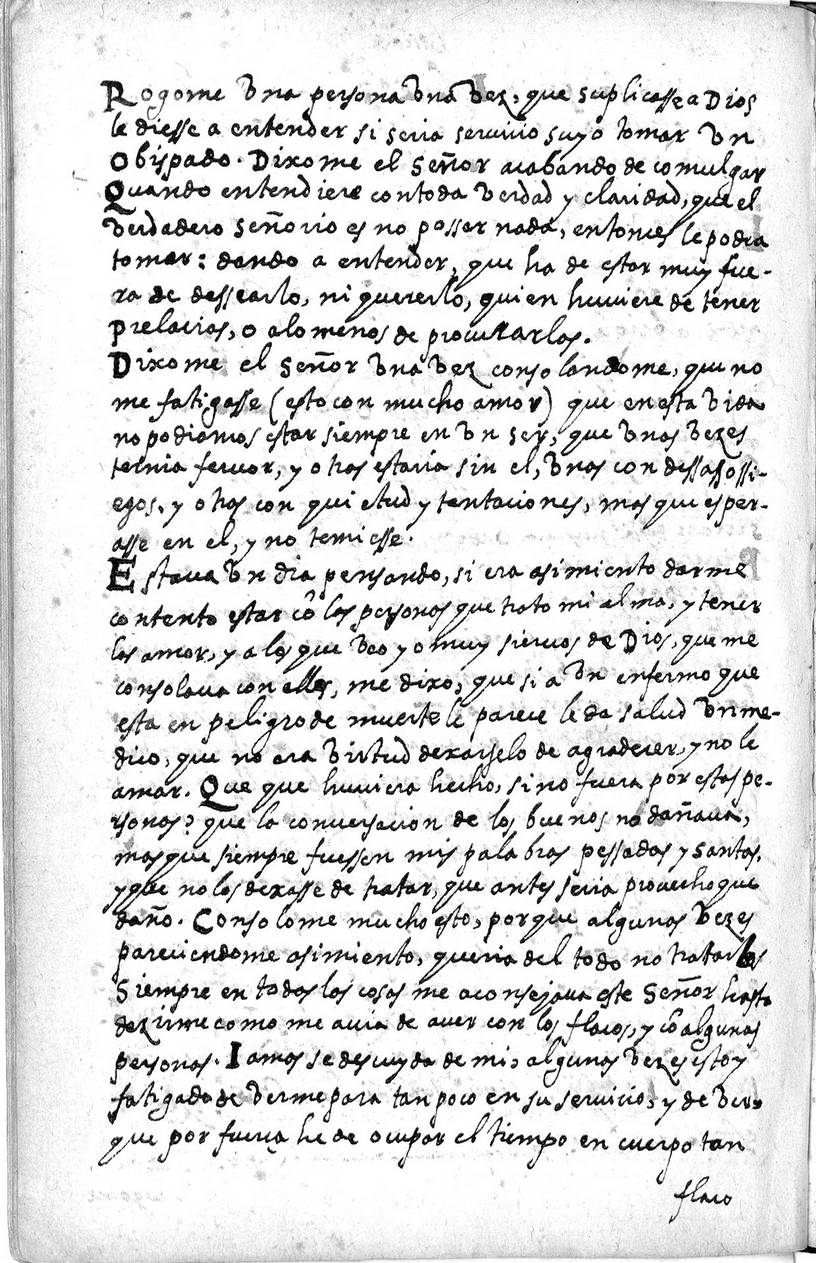 Rogome vna persona vna vez, que suplicasse a Dios
le diesse a entender si seria seruicio suyo tomar vn
Obispado. Dixome el Señor acabando de comulgar
Quando entendiere con toda verdad y claridad, que el
verdadero señorio es no posser nada, entonces le podra
tomar: dando a entender, que ha de estar muy fue-
ra de dessearlo, ni quererlo, quien huuiere de tener
prelacias, o alomenos de procurarlas.
Dixome el Señor vna vez consolandome, que no
me fatigasse (esto con mucho amor) que en esta vida
no podiamos estar siempre en vn ser, que vnas vezes
ternia feruor, y otras estaria sin el, vnas con dessassossi-
egos, y otras con quietud y tentaciones, mas que esper-
asse en el, y no temiesse.
Estaua vn dia pensando, si era asimiento darme
contento estar cõ las personas que trato mi alma, y tener
les amor, y a los que veo yo muy sieruos de Dios, que me
consolaua con ellos, me dixo, que si a vn enfermo que
esta en peligro de muerte le parece le da salud vn me-
dico, que no era virtud dexarselo de agradecer, y no le
amar. Que que huuiera hecho, si no fuera por estas pe-
rsonas? que la conuersacion de los buenos no dañaua,
mas que siempre fuessen mis palabras pessadas y santas,
y que no los dexasse de tratar, que antes seria prouecho que
daño. Consolome mucho esto, porque algunas vezes
pareciendome asimiento, queria del todo no tratarlos
Siempre en todas las cosas me aconsejaua este Señor hasta
dezirme como me auia de auer con los flacos, y cõ algunas
personas. Iamas se descuyda de mi, algunas vezes estoy
fatigada de verme para tan poco en su seruicio, y de ver,
que por fuerça he de ocupar el tiempo en cuerpo tan
flaco